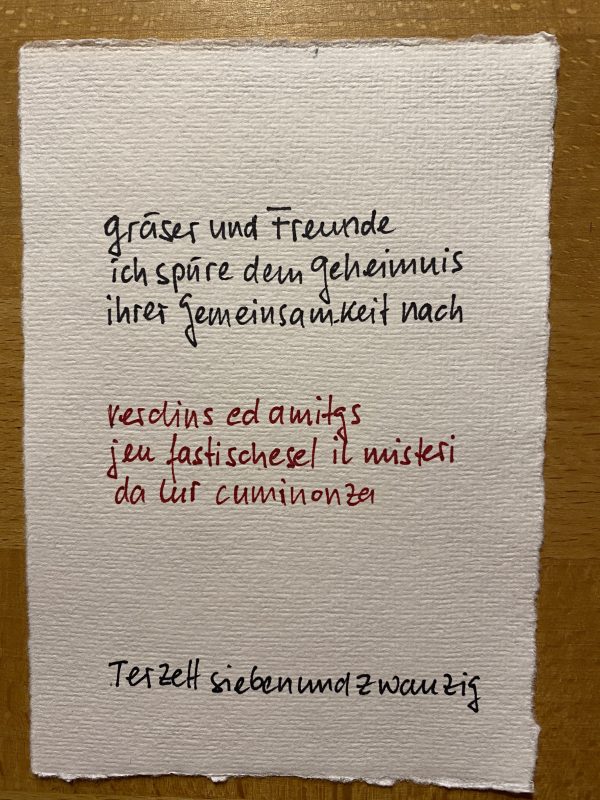 gräser und Freunde
ich spüre dem geheimnis
ihrer gemeinsamkeit nach
verdins ed amitgs
jeu fastischesel il misteri
da lur cuminonza
Terzett siebenundzwanzig